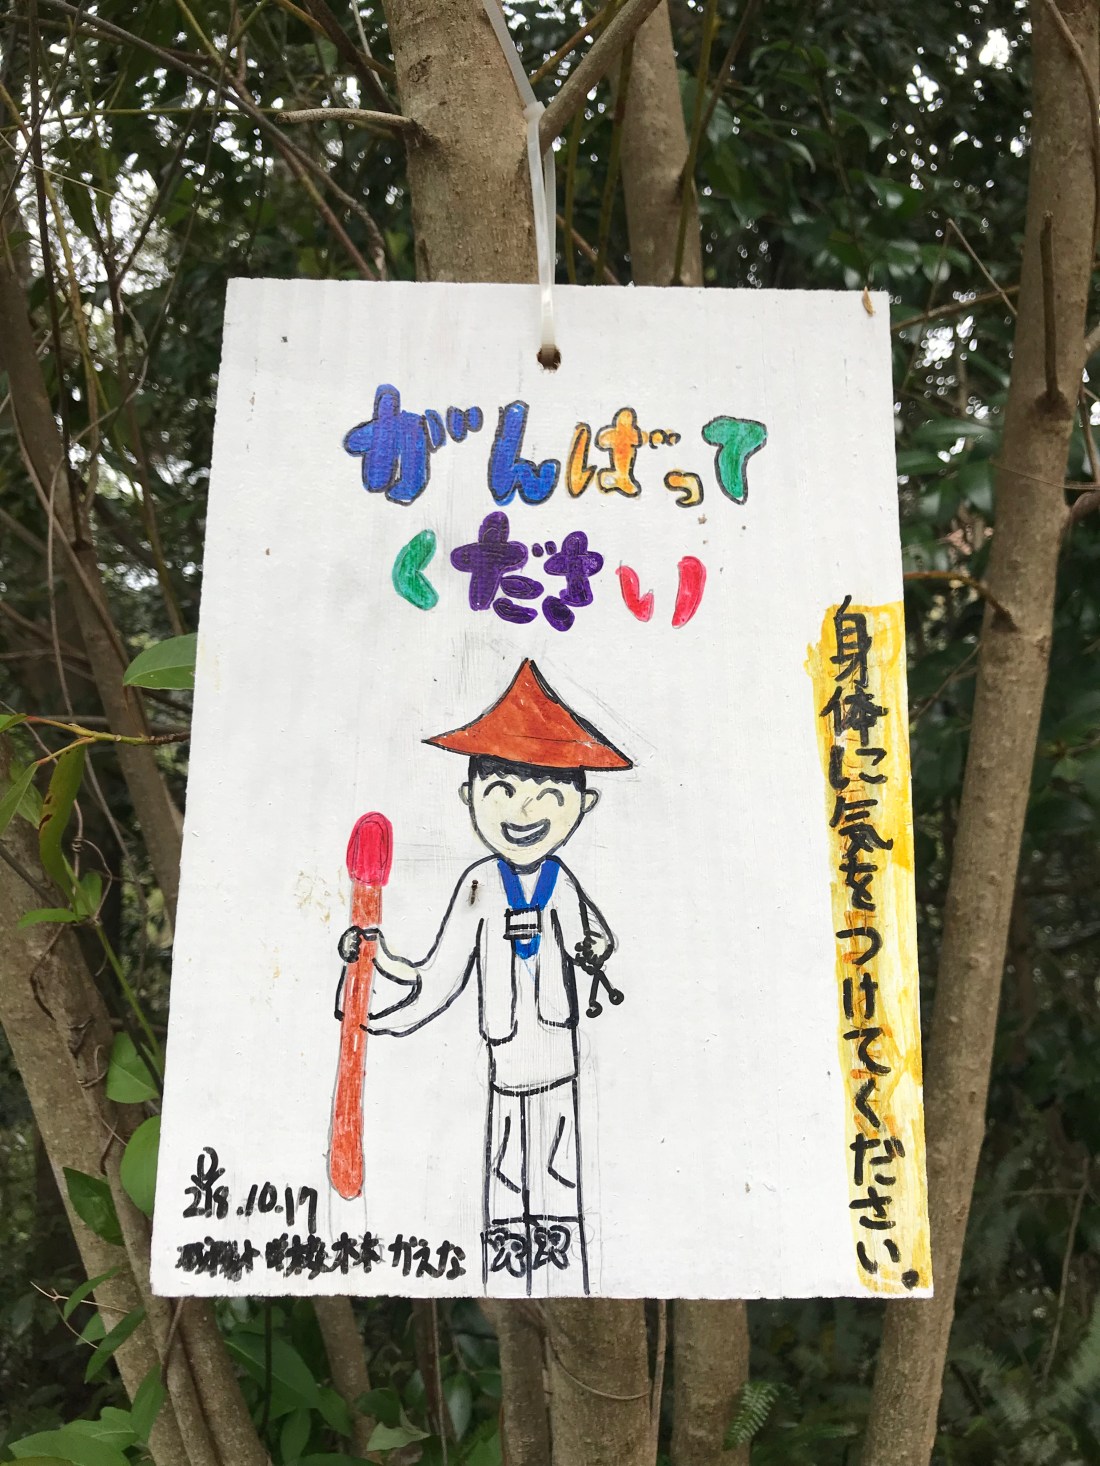 がんばって
ください
身体に気をつけてください。
218.10.17
林 かえな